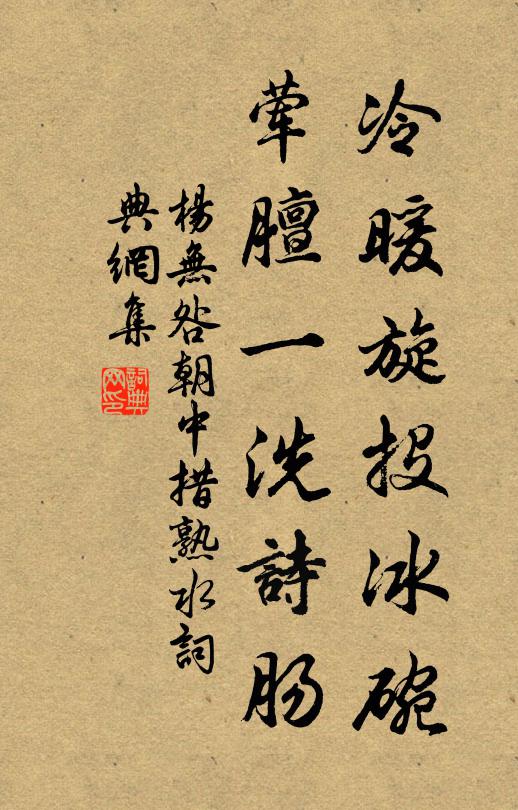 冷暖旋投冰碗
荤膻一洗詩肠
楊無咎朝中措熟水詞
典網集
詞典網印